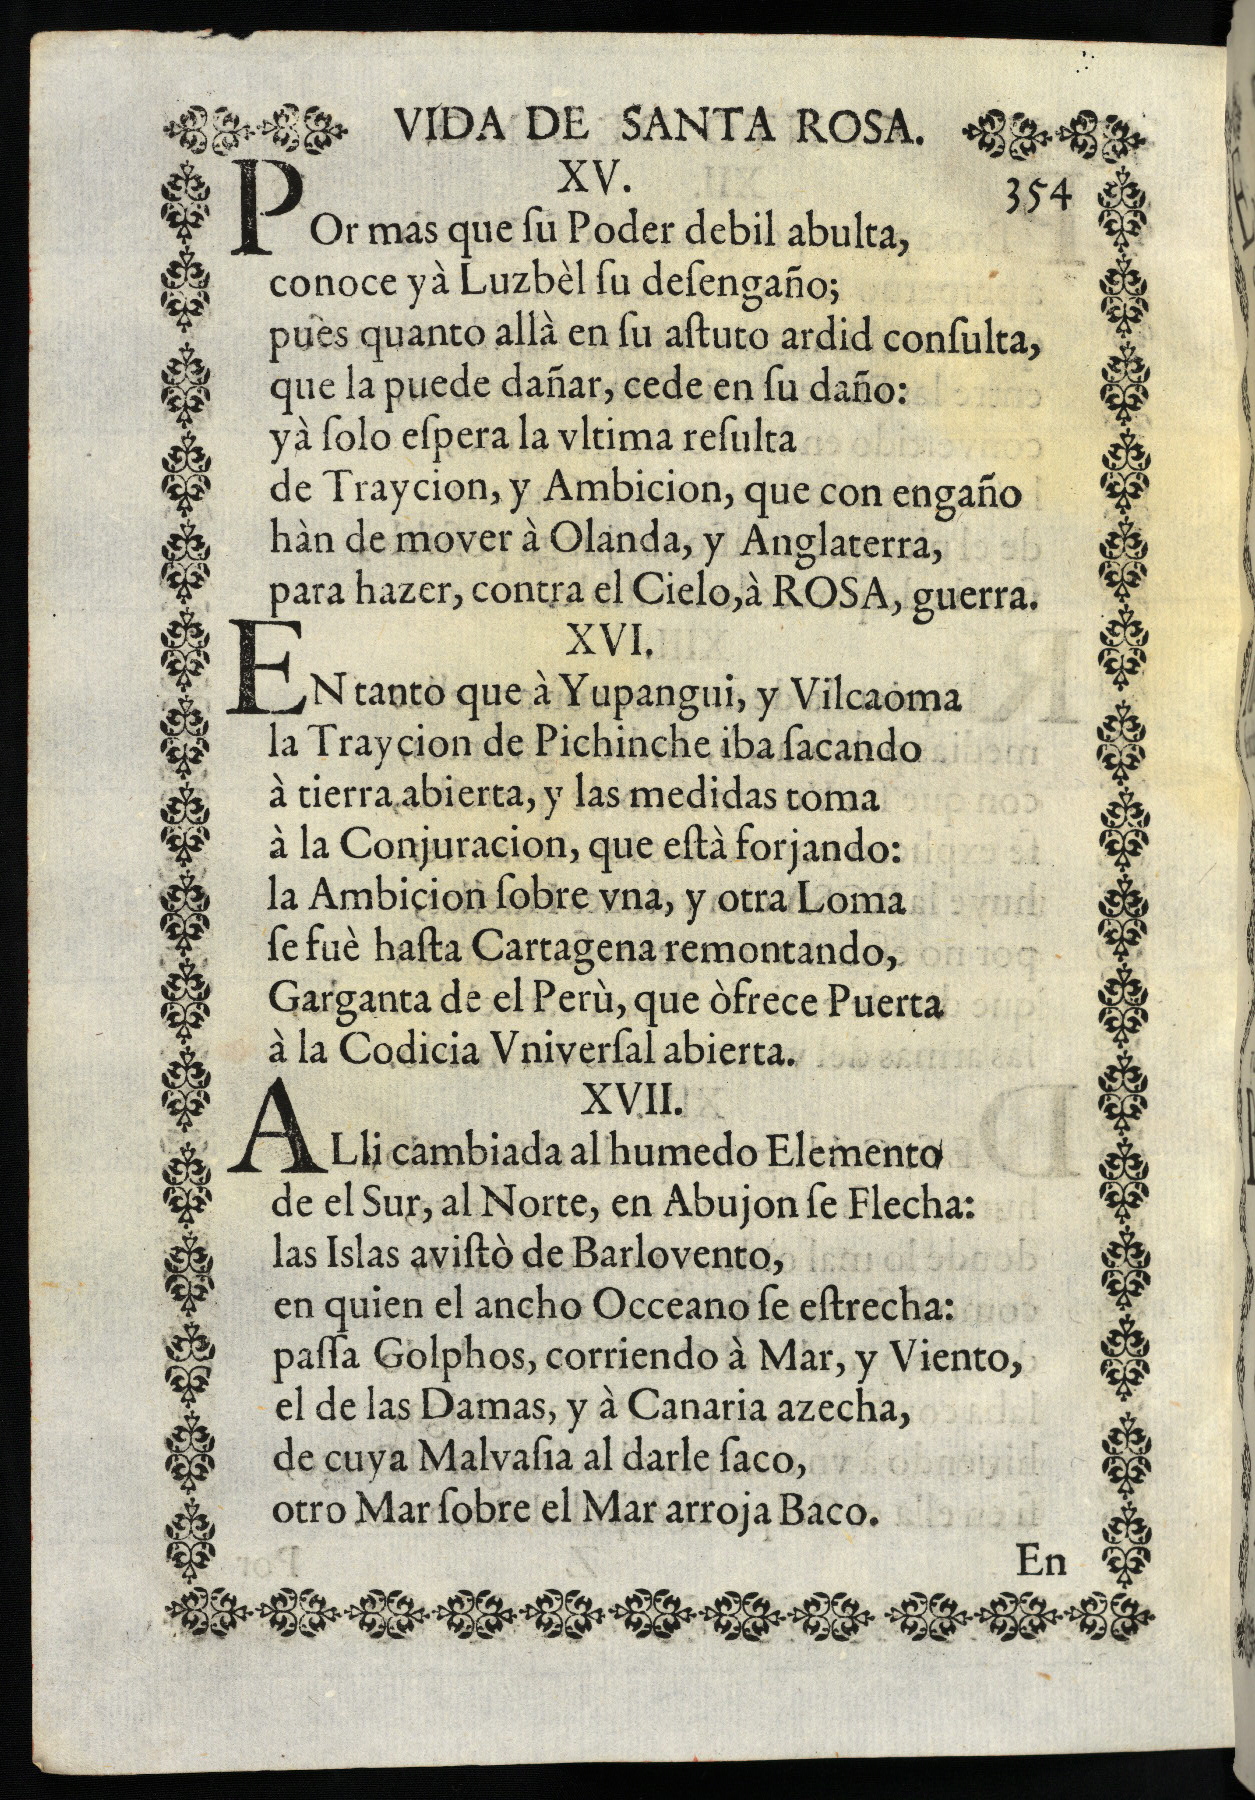 VIDA DE SANTA ROSA.
XV.
354
POr mas que ſu Poder debil abulta,
conoce yà Luzbèl ſu deſengaño;
pues quanto allà en ſu aſtuto ardid conſulta,
que la puede dañar, cede en ſu daño:
yà ſolo eſpera la vltima reſulta
de Traycion, y Ambicion, que con engaño
hàn de mover à Olanda, y Anglaterra,
para hazer, contra el Cielo, à ROSA, guerra.
XVI.
EN tanto que à Yupangui, y Vilcaoma
la Traycion de Pichinche iba ſacando
à tierra abierta, y las medidas toma
à la Conjuracion, que eſtà forjando:
la Ambicion ſobre vna, y otra Loma
ſe fuè haſta Cartagena remontando,
Garganta de el Perù, que òfrece Puerta
à la Codicia Vniverſal abierta.
XVII.
ALli cambiada al humedo Elemento
de el Sur, al Norte, en Abujon ſe Flecha:
las Islas aviſtò de Barlovento,
en quien el ancho Occeano ſe eſtrecha:
paſſa Golphos, corriendo à Mar, y Viento,
el de las Damas, y à Canaria azecha,
de cuya Malvaſia al darle ſaco,
otro Mar ſobre el Mar arroja Baco.
En